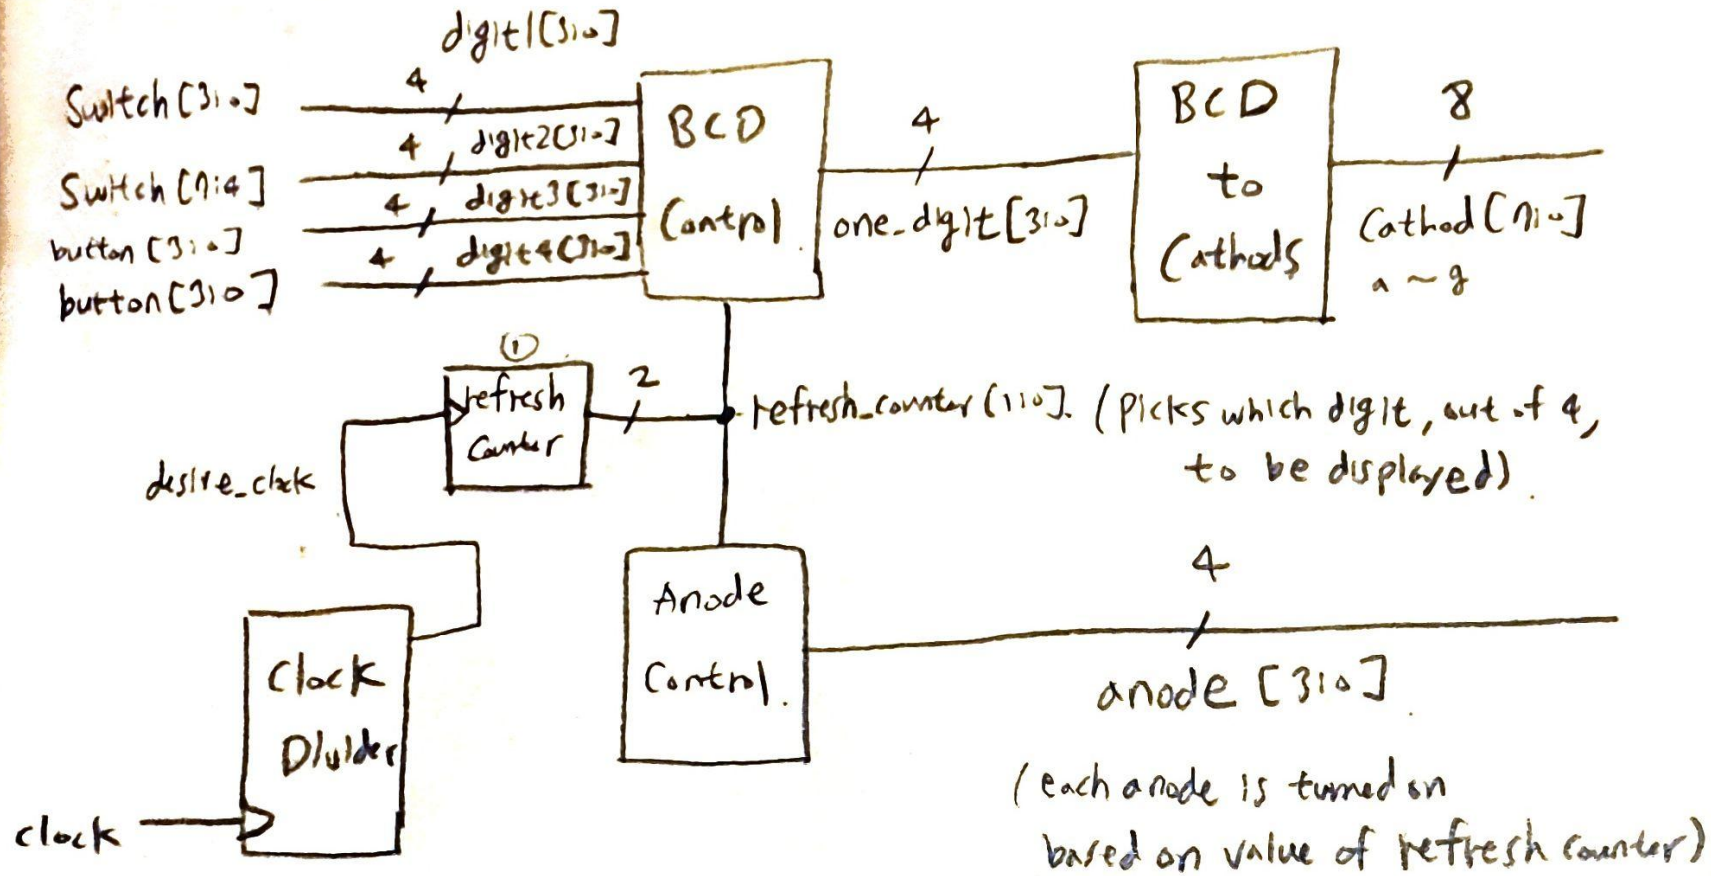 digit1[3:0]
Switch[3:0]
4
digit2[3:0]
4
Switch[7:4]
digit3[3:0]
4
button[3:0]
digit4[3:0]
4
button[3:0]
BCD
Control
4
one_digit[3:0]
BCD
to
Cathods
8
Cathod[7:0]
a ~ g
1
refresh
Counter
2
refresh_counter[1:0]. (Picks which digit, out of 4,
to be displayed)
desire_clock
Clock
Divider
clock
Anode
Control.
4
anode [3:0]
(each anode is turned on
based on value of refresh counter)